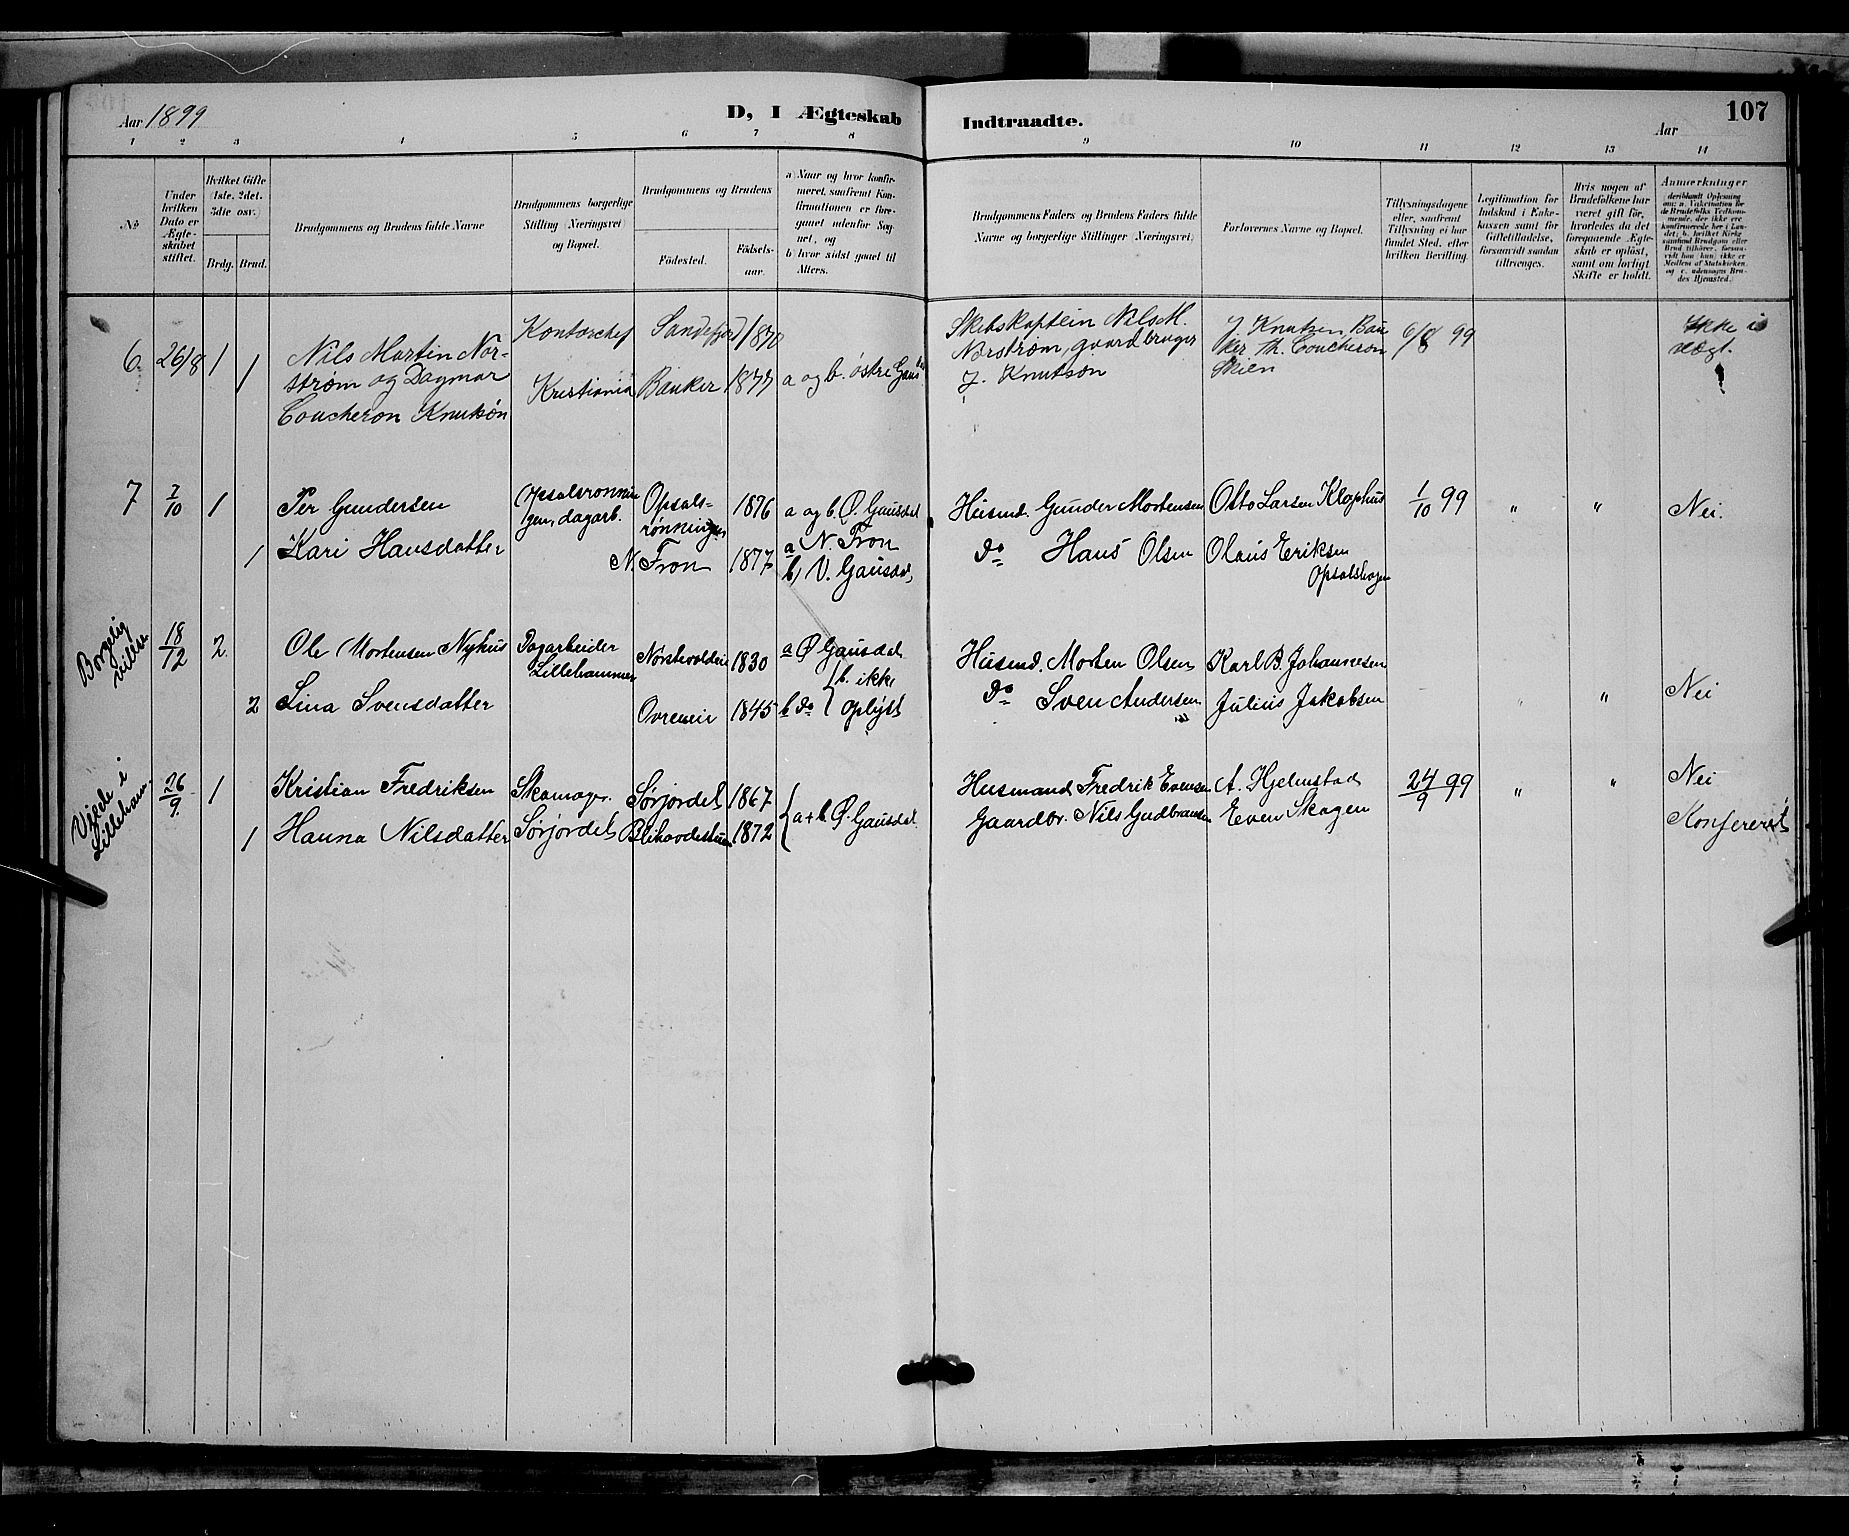 Aar 1899
D, I Ægteskab Indtraadte.
Aar
107
1 2 3 4 5 6 7 8 9 10 11 12 13 14
No.
Under hvilken Dato er Ægteskabet stiftet.
Hvilket Gifte (1ste, 2det, 3die osv.)
Brdg. Brud.
Brudgommens og Brudens fulde Navne
Brudgommens borgerlige Stilling (Næringsvei) og Bopæl.
Brudgommens og Brudens
Fødested.
Fødselsaar.
a) Naar og hvor konfirmeret, saafremt Konfirmationen er foregaaet udenfor Sognet, og
b) hvor sidst gaaet til Alters.
Brudgommens Faders og Brudens Faders fulde Navne og borgerlige Stillinger (Næringsvei)
Forlovernes Navne og Bopæl.
Tillysningsdagene eller, saafremt Tillysning ei har fundet Sted, efter hvilken Bevilling.
Legitimation for Indskud i Enkekassen samt for Giftetilladelse, forsaavidt saadan tiltrænges.
Hvis nogen af Brudefolkene har været gift før, hvorledes da det foregaaende Ægteskab er opløst, samt om lovligt Skifte er holdt.
Anmærkninger
6. 26/8 1 1
Nils Martin Nor-
strøm og Dagmar
Coucheron Knutsøn
Kontorchef
Kristiania
Sandefjord 1870
Bauker 1877
a og b. østre Gausdal
Skibskaptein Nils M.
Norstrøm, gaardbruger
J. Knutsøn
J. Knutsen Bau
ker. Th. Coucheron
Skien
6/8 99
Ikke i
slægt.
7 7/10 1
Per Gundersen
Opsalsrønnin
gen, dagarb.
Opsals-
rønningen
1876
a og b. Ø. Gausdal
Husmd. Gunder Mortensen
Otto Larsen Klophus
1/10 99 " " Nei.
1 Kari Hansdatter
N. Fron 1877
a N. Fron
b, V. Gausdal
Do Hans Olsen
Olaus Eriksen
Opsalshagen
Borgelig
vielse
18/12 2.
Ole Mortensen Nyhus
Dagarbeider
Lillehammer
1830
a Ø Gausdal
Husmd. Morten Olsen
Karl B. Johannesen
2 Lina Svensdatter
Øvreneir 1845
b Do { b. ikke
oplyst
Do Sven Andersen
Julius Jakobsen
" " Nei
Viede i
Lilleham.
26/9. 1
Kristian Fredriksen
Skomager.
Sørjordet 1867
{ a + b Ø. Gausdal.
Husmand Fredrik Evensen
A. Hjelmstad
24/9 99 " " Nei
1 Hanna Nilsdatter
Sørjordet
1872
Gaardbr. Nils Gudbransen
Even Skogen
Konfereret